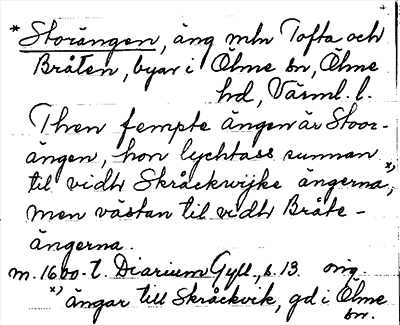 * Storängen, äng mln Tofta och
Bråten, byar i Ölme sn, Ölme
hd, Värml. l.
Then fempte ängen är Stoor-
ängen, hon lychtass sunnan
til vidh Skråckwijke ängerna x),
men västan til vidh Bråte-
ängerna.
m. 1600-t. Diarium Gyll., s. 13. orig.
x) ängar till Skråckvik, gd i Ölme
sn.